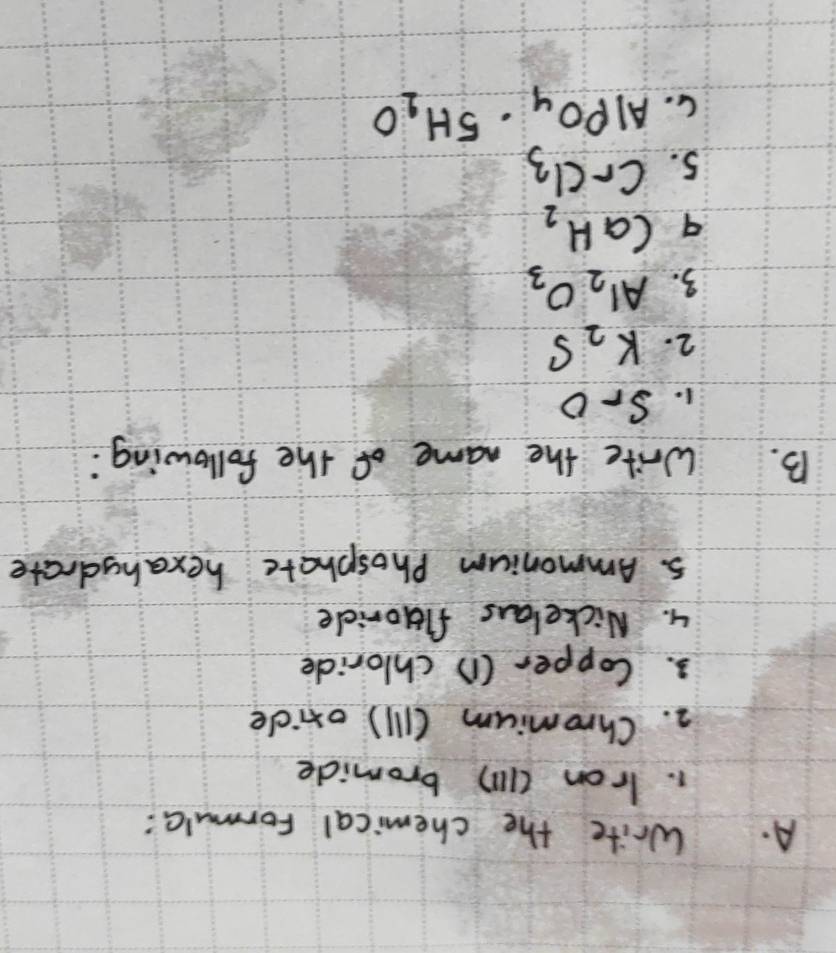 A. Write the chemical Formula:
1. Iron (III) bromide
2. Chromium (III) oxide
3. Copper (I) chloride
4. Nickelous fluoride
5. Ammonium Phosphate hexahydrate
B. Write the name of the following:
1. SrO
2. K₂S
3. Al₂O₃
4 CaH₂
5. CrCl₃
6. AlPO₄ · 5H₂O